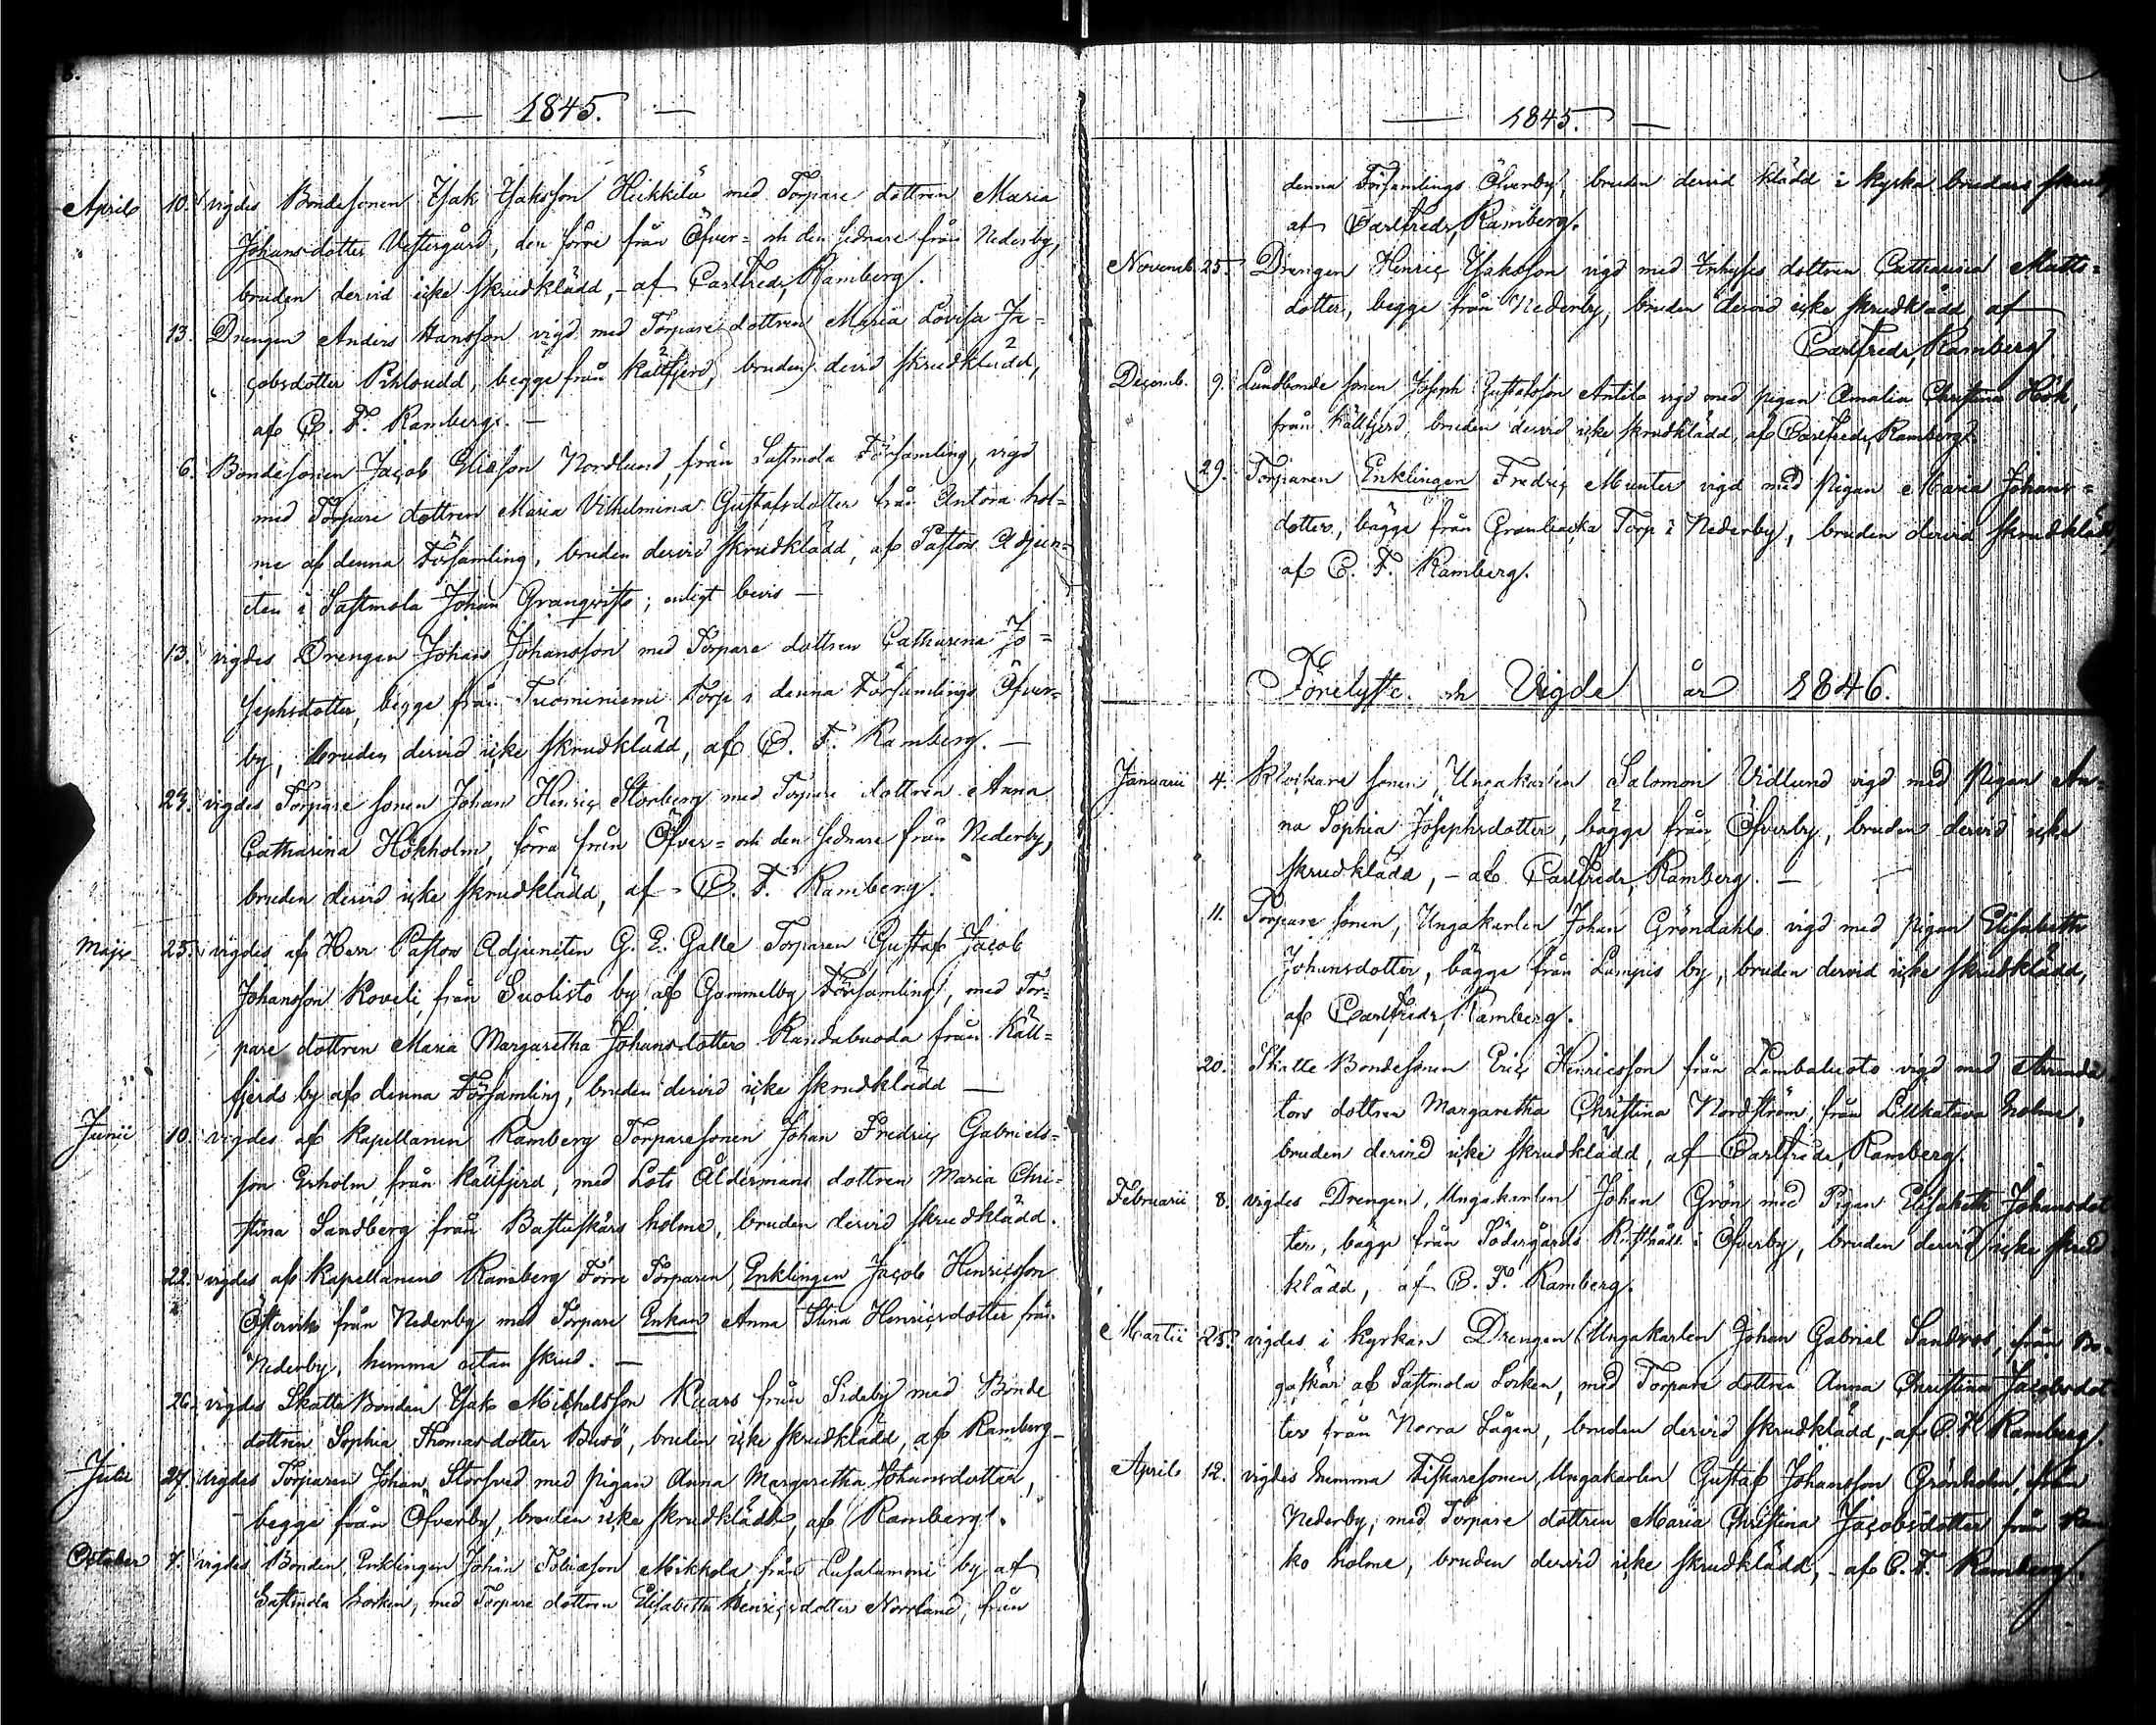 — 1845. —
April 10. vigdes Bondesonen Isak Isaksson Heikkilä med Torpare dottren Maria
Johansdotter Vestergård, den förre från Öfver= och den sednare från Nederby,
bruden dervid icke skrudklädd, – af Carlfredr, Ramberg.
13. Drengen Anders Hansson vigd med Torpare dottren Maria Lovisa Ja=
cobsdotter Pihloudd, begge från Källfjerd, bruden dervid skrudklädd,
af C. F. Ramberg. —
6. Bondesonen Jacob Eliæson Nordlund, från Sastmola Församling, vigd
med Torpare dottren Maria Vilhelmina Gustafsdotter från Antora hol=
me af denna Församling, bruden dervid skrudklädd, af Pastors Adjunc=
ten i Sastmola Johan Granqvist; enligt bevis —
13. vigdes Drengen Johan Johansson med Torpare dottren Catharina Jo=
sephsdotter, begge från Tuominiemi Torp i denna Församlings Öfver=
by, bruden dervid icke skrudklädd, af C. F. Ramberg. —
24. vigdes Torpare sonen Johan Henric Storberg med Torpare dottren Anna
Catharina Hökholm, förra från Öfver= och den sednare från Nederby,
bruden dervid icke skrudklädd, af C. F. Ramberg.
Maji 25. vigdes af Herr Pastors Adjuncten G. E. Galle Torparen Gustaf Jacob
Johansson Koveli, från Suolisto by af Gammelby Församling, med Tor=
pare dottren Maria Margaretha Johansdotter Randabuoda från Käll=
fjerds by af denna Församling, bruden dervid icke skrudklädd —
Junii 10. vigdes af Kapellanen Ramberg Torparesonen Johan Fredric Gabriels=
son Erholm, från Källfjerd, med Lots Åldermans dottren Maria Chri=
stina Sandberg från Bastuskärs holme, bruden dervid skrudklädd.
22. vigdes af Kapellanen Ramberg Förre Torparen, Enklingen Jacob Henricsson
Östervik från Nederby med Torpare Enkan Anna Stina Henricsdotter från
Nederby, hemma utan skrud. —
26. vigdes Skatte Bonden Isak Michelsson Kaars från Sideby med Bonde
dottren Sophia Thomasdotter Busö, bruden icke skrudklädd, af Ramberg —
Julii 27. vigdes Torparen Johan Storsved med pigan Anna Margaretha Johansdotter,
begge från Öfverby, bruden icke skrudklädd, af Ramberg.
October 7. vigdes Bonden, Enklingen Johan Tobiasson Mikkola, från Lusalammi by af
Sastmola Socken, med Torpare dottren Elisabetha Henricsdotter Norrland, från
— 1845. —
denna Församlings Öfverby, bruden dervid klädd i kyrka brudars skrud,
af Carlfredr, Ramberg.
Novemb. 25. Drengen Henric Isaksson vigd med Inhyses dottren Catharina Matts=
dotter, begge från Nederby, bruden dervid icke skrudklädd, af
Carlfredr, Ramberg
Decemb. 9. Landbonde sonen Joseph Gustafsson Antila vigd med pigan Amalia Christina Hök,
från Källfjerd, bruden dervid icke skrudklädd, af Carlfredr, Ramberg.
29. Torparen Enklingen Fredric Munter vigd med Pigan Maria Johans=
dotter, bägge från Granbacka Torp i Nederby, bruden dervid skrudklädd,
af C. F. Ramberg.
Förelyste och Vigde år 1846.
Januarii 4. Klockare sonen, Ungakarlen Salomon Vidlund vigd med Pigan An=
na Sophia Josephsdotter, bägge från Öfverby, bruden dervid icke
skrudklädd, – af Carlfredr, Ramberg. —
11. Torpare sonen, Ungakarlen Johan Gröndahl vigd med pigan Elisabeth
Johansdotter, bägge från Lampis by, bruden dervid icke skrudklädd,
af Carlfredr, Ramberg.
20. Skatte Bondesonen Eric Henricsson från Lambaluoto vigd med Arrenda
tors dottren Margaretha Christina Nordström, från holme,
bruden dervid icke skrudklädd, af Carlfredr, Ramberg.
Februarii 8. vigdes Drengen, Ungakarlen Johan Grön med Pigan Elisabeth Johansdot
ter, bägge från Södergårds Rusthåll i Öfverby, bruden dervid icke skrud
klädd, af C. F. Ramberg.
Martii 25. vigdes i Kyrkan Drengen Ungakarlen Johan Gabriel från
af Sastmola Socken, med Torpare dottren Anna Christina Jacobsdot
ter från Norra Lågen, bruden dervid skrudklädd, – af C. F. Ramberg.
April 12. vigdes hemma Fiskaresonen, Ungakarlen Gustaf Johansson Grönholm, från
Nederby, med Torpare dottren Maria Christina Jacobsdotter från
ko holme, bruden dervid icke skrudklädd, – af C. F. Ramberg.